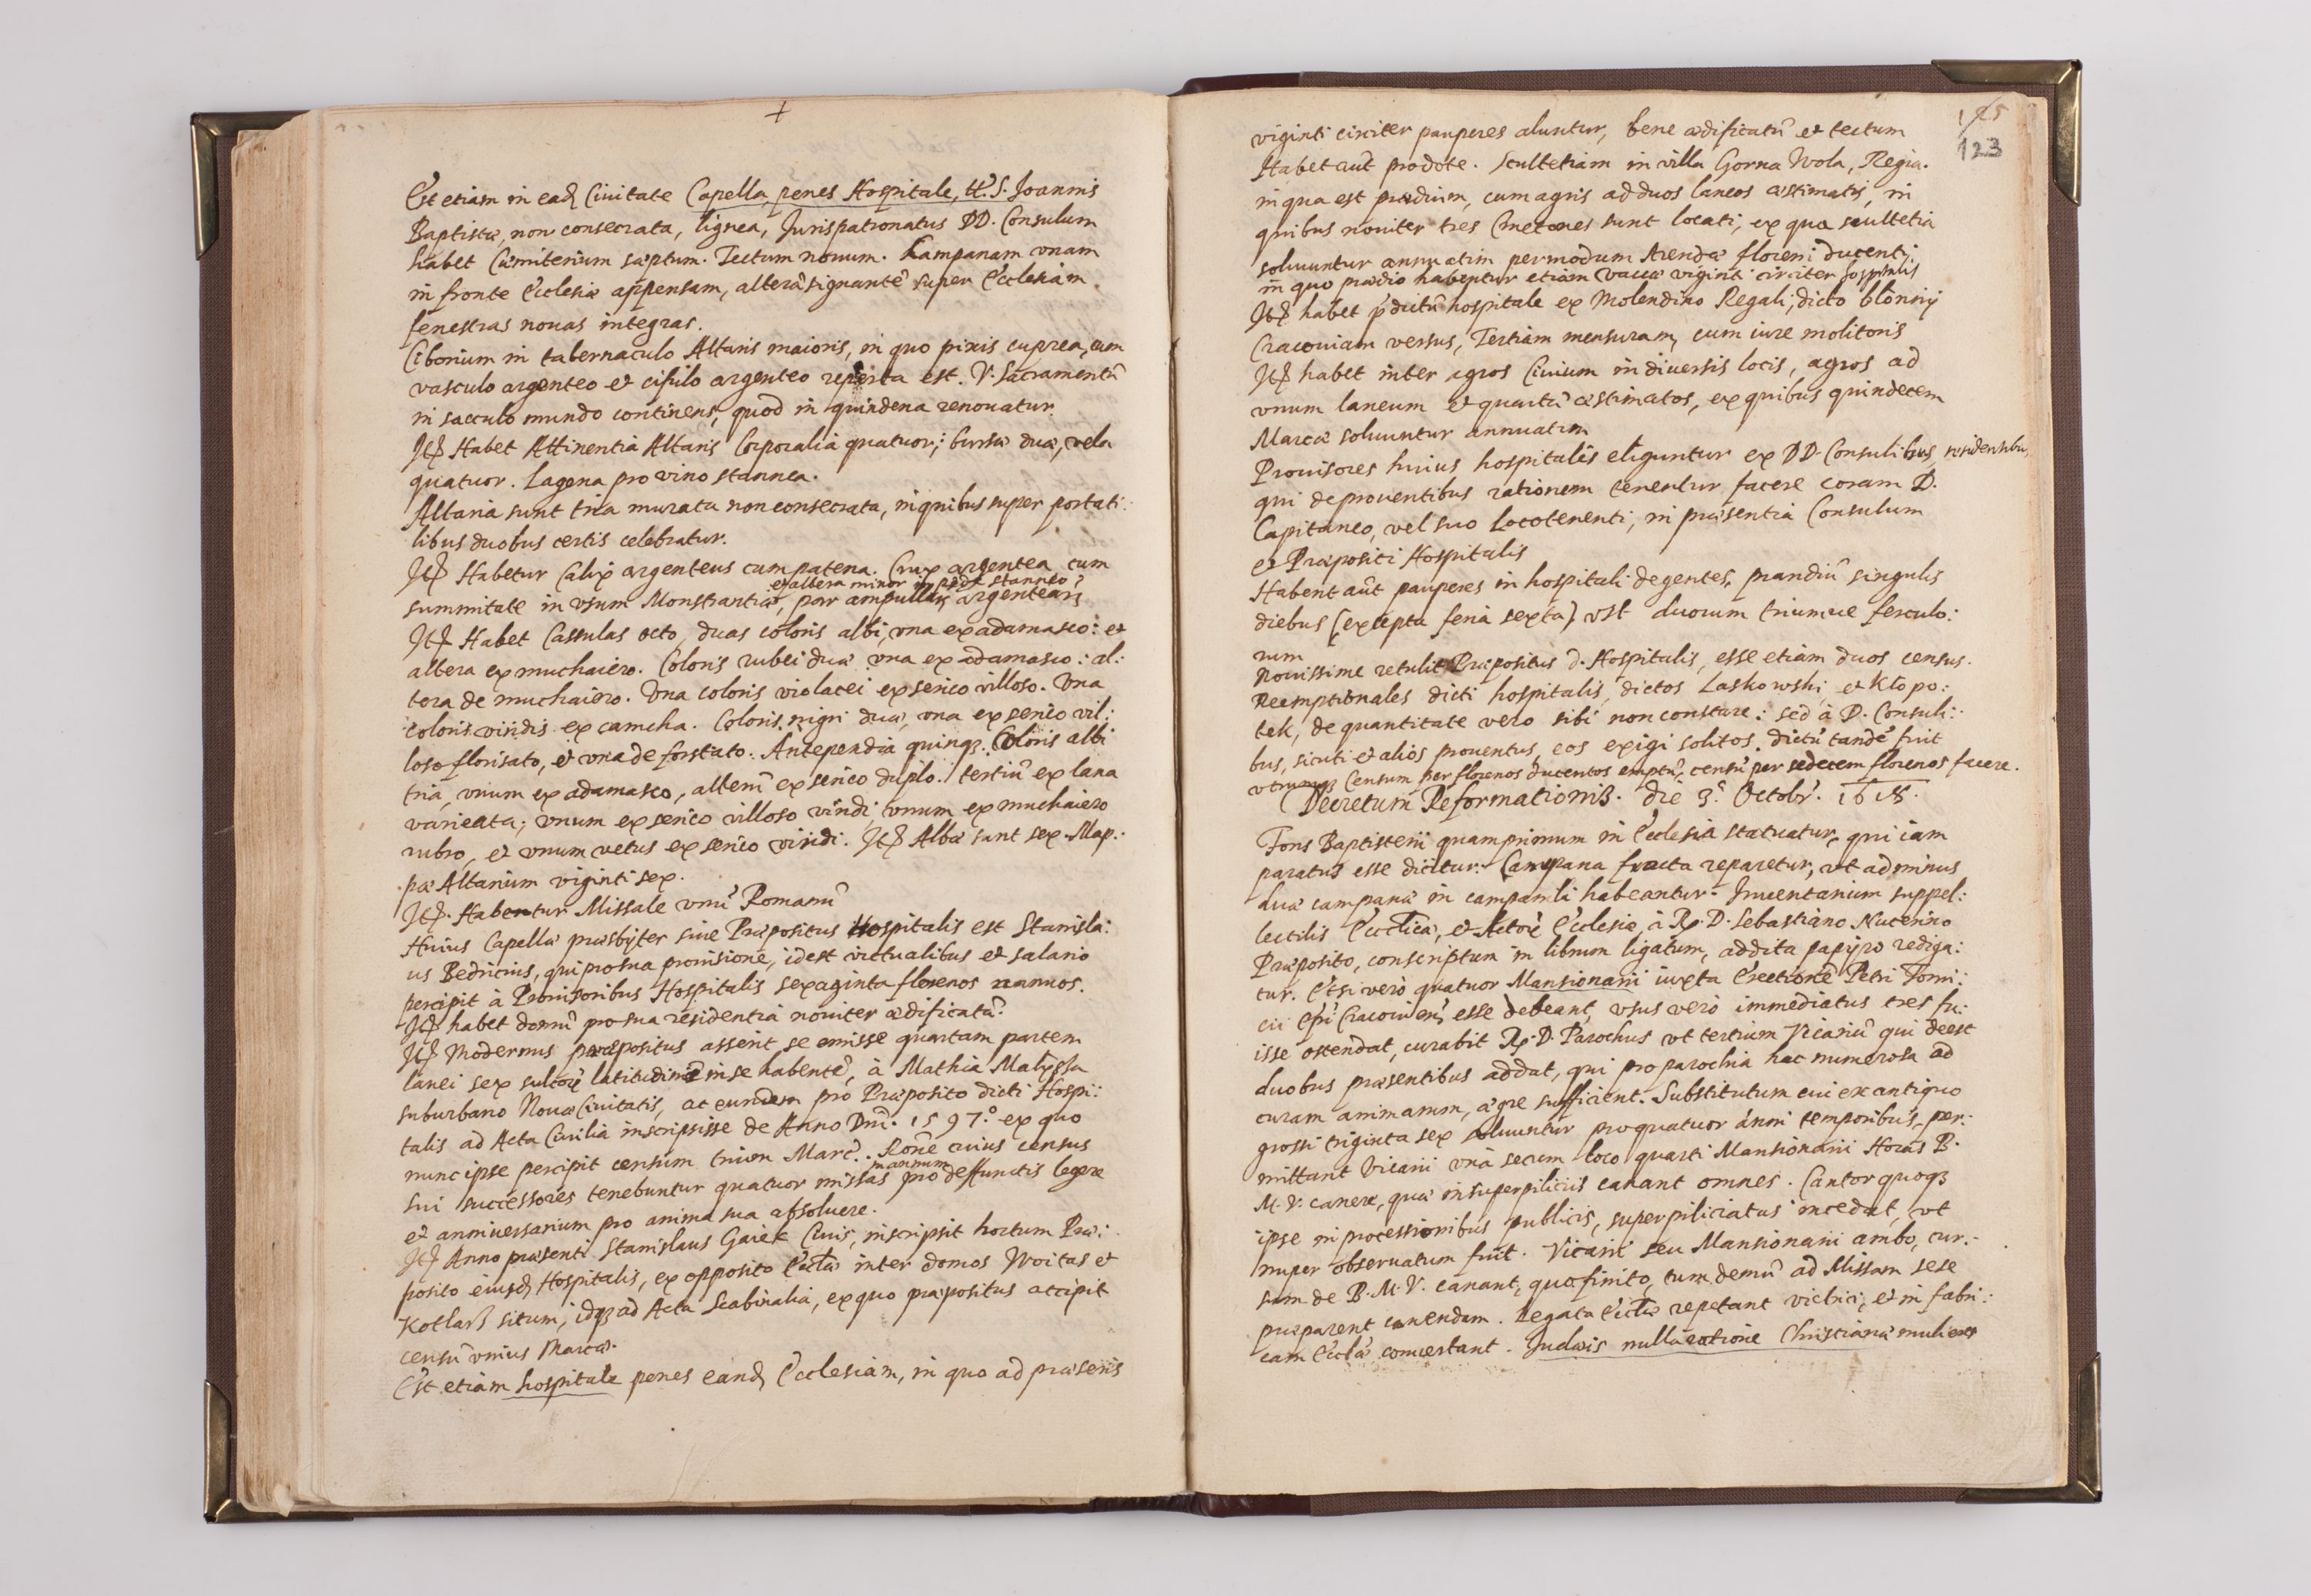 +
Est etiam in ead. Ciuitate Capella penes Hospitale, tt. S. Joannis
Baptistæ, non consecrata, lignea, Jurispatronatus DD. Consulum
habet Cæmiterium sæptum. Tectum nouum. Campanam vnam
in fronte Ecclesiæ appensam, alterã signantẽ super Ecclesiam.
fenestras nouas integras.
Ciborium in tabernaculo Altaris maioris, in quo pixis cuprea, cum
vasculo argenteo et cifulo argenteo reperta est. V. Sacramentũ
in sacculo mundo continens, quod in quindena renouatur.
Itẽ Habet Attinentia Altaris Corporalia quatuor; bursæ duæ, vela
quatuor. Lagena pro vino stannea.
Altaria sunt tria murata non consecrata, in quibus super portati:
libus duobus certis celebratur.
Itẽ Habetur Calix argenteus cum patena. Crux argentea cum
et altera minor in pede stanneo
summitate in vsum Monstrantiæ, par ampullarũ argentearũ
Itẽ Habet Cassulas octo, duas coloris albi, vna ex adamasco: et
altera ex muchaiero. Coloris rubei duæ vna ex adamasco: al:
tera de muchaiero. Vna coloris violacei ex serico villoso. Vna
coloris viridis ex camcha. Coloris nigri duæ, vna ex serico vil:
loso florisato, et vna de forstato. Antependia quinq3. Coloris albi
tria, vnum ex adamasco, alterũ ex serico duplo. tertiũ ex lana
varieata; vnum ex serico villoso viridi, vnum ex muchaiero
rubro, et vnum vetus ex serico viridi. Itẽ Albæ sunt sex. Map:
pæ Altarium viginti sex.
Itẽ. Habentur Missale vnũ Romanũ
Huius Capellæ præsbyter siue Præpositus Hospitalis est Stanisla:
us Bedricius, qui pro sua prouisione, id est victualibus et salario
percipit à Prouisoribus Hospitalis sexaginta florenos nannos.
Itẽ habet domũ pro sua residentia nouiter ædificatã.
Itẽ Modernus præpositus asserit se emisse quartam partem
lanei sex sulcorũ latitudinẽ in se habentẽ, à Mathia Matyssa
suburbano Nouæ Ciuitatis, ac eundem pro Præposito dicti Hospi:
talis ad Acta Ciuilia inscripsisse de Anno Dni. 1597.° ex quo
nunc ipse percipit censum trium Marc. Rõne cuius census
in annum
sui successores tenebuntur quatuor missas pro deffunctis legere
et anniuersarium pro anima sua absoluere.
Itẽ Anno præsenti Stanislaus Gaiek Ciuis, inscripsit hortum Præ:
posito eiusd. Hospitalis, ex opposito Ecclæ inter domos Woitas et
Kotlarz situm, idq3 ad Acta Scabinalia, ex quo præpositus accipit
censũ vnius Marcæ.
Est etiam hospitale penes eand. Ecclesiam, in quo ad præsens
195
123
viginti circiter pauperes aluntur, bene ædificatũ et tectum
Habet aũt pro dote. Scultetiam in villa Gorna Wola, Regia.
in qua est prædium, cum agris ad duos laneos æstimatis, in
quibus nouiter tres Cmetones sunt locati, ex qua scultetia
soluuntur annuatim per modum Arendæ floreni ducenti:
in quo prædio habentur etiam vaccæ viginti circiter hospitalis
Itẽ habet p̃dictũ hospitale ex Molendino Regali, dicto blonny
Cracouiam versus, Tertiam mensuram, cum iure molitoris
Itẽ habet inter agros Ciuium in diuersis locis, agros ad
vnum laneum et quartã æstimatos, ex quibus quindecem
Marcæ soluuntur annuatim
Prouisores huius hospitalis eliguntur ex DD. Consulibus, residentibus,
qui de prouentibus rationem tenentur facere coram D.
Capitaneo, vel suo Locotenenti, in præsentia Consulum
et Præpositi Hospitalis
Habent aũt pauperes in hospitali degentes, prandiũ singulis
diebus (excepta feria sexta) vst duorum triumue ferculo:
rum
Nouissime retulit Præpositus d. Hospitalis, esse etiam duos census.
Reemptionales dicti hospitalis, dictos Laskowski et Kłopo:
tek, de quantitate vero sibi non constare: sed à D. Consuli:
bus, sicuti et alios prouentus, eos exigi solitos. dictũ tandẽ fuit
vtrumq3 Censum per florenos ducentos emptũ, censũ per sedecem florenos facere.
Decretum Reformationis. die 3.ª Octobr. 1618.
Fons Baptisterii quamprimum in Ecclesia statuatur, qui iam
paratus esse dicitur. Campana fracta reparetur, vt ad minus
duæ campanæ in campanili habeantur. Inuentarium suppel:
lectilis Eccticæ, et Actorũ Ecclesiæ, à R. D. Sebastiano Nucerino
Præposito, conscriptum in librum ligatum, addita papyro rediga:
tur. Etsi verò quatuor Mansionarii iuxta Erectionẽ Petri Tomi:
cii Epi Cracouieñ. esse debeant, vsus verò immediatus tres fu:
isse ostendat, curabit R. D. Parochus vt tertium Vicariũ qui deest
duobus præsentibus addat, qui pro parochia hac numerosa ad
curam animarum, ægre sufficient. Substitutum cui ex antiquo
grossi triginta sex soluuntur pro quatuor anni temporibus, per:
mittant Vicarii vnà secum loco quarti Mansionarii Horas B.
M. V. canere, quæ in superpiliciis canant omnes. Cantor quoq3
ipse in processionibus publicis, superpiliciatus incedat, vt
nuper obseruatum fuit. Vicarii seu Mansionarii ambo, cur:
sum de B. M. V. canant, quo finito, tum demũ ad Missam sese
præparent canendam. Legata Ecclæ repetant vietrici, et in fabri:
cam Ecclæ conuertant. Judæis nulla ratione Christianæ mulieres